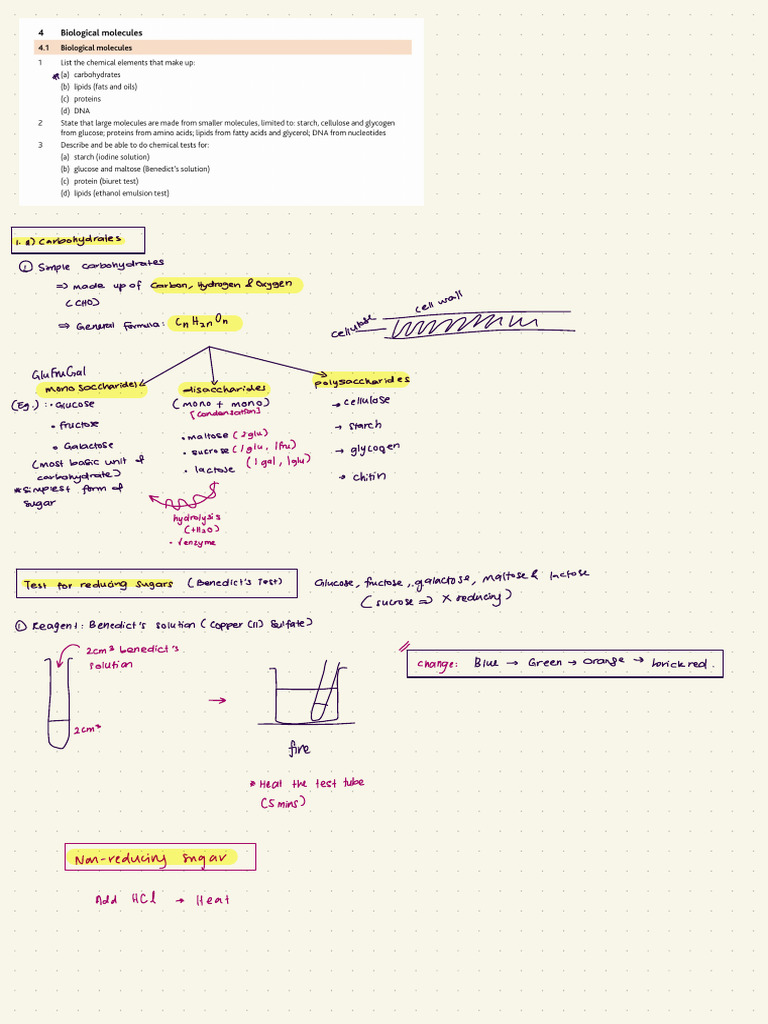 4 Biological molecules
4.1 Biological molecules
1 List the chemical elements that make up:
(a) carbohydrates
(b) lipids (fats and oils)
(c) proteins
(d) DNA
2 State that large molecules are made from smaller molecules, limited to: starch, cellulose and glycogen
from glucose; proteins from amino acids; lipids from fatty acids and glycerol; DNA from nucleotides
3 Describe and be able to do chemical tests for:
(a) starch (iodine solution)
(b) glucose and maltose (Benedict's solution)
(c) protein (biuret test)
(d) lipids (ethanol emulsion test)
1. a) Carbohydrates
① Simple carbohydrates
⇒ made up of Carbon, Hydrogen & Oxygen
(CHO)
⇒ General formula: CnH2nOn
cellulose
cell wall
GluFruGal
monosaccharides
(Eg.): • Glucose
• Fructose
• Galactose
(most basic unit of
carbohydrate)
* simplest form of
sugar
disaccharides
(mono + mono)
[condensation]
• maltose (2glu)
• sucrose (1glu, 1fru)
• lactose (1gal, 1glu)
hydrolysis
(+H2O)
• /enzyme
polysaccharides
→ cellulose
→ starch
→ glycogen
→ chitin
Test for reducing sugars (Benedict's Test)
Glucose, fructose, galactose, maltose & lactose
(sucrose ⇒ X reducing)
① Reagent: Benedict's solution (Copper (II) Sulfate)
2cm³ benedict's
solution
2cm³
→
fire
* Heat the test tube
(5 mins)
change: Blue → Green → Orange → brick red.
Non-reducing sugar
Add HCl → Heat